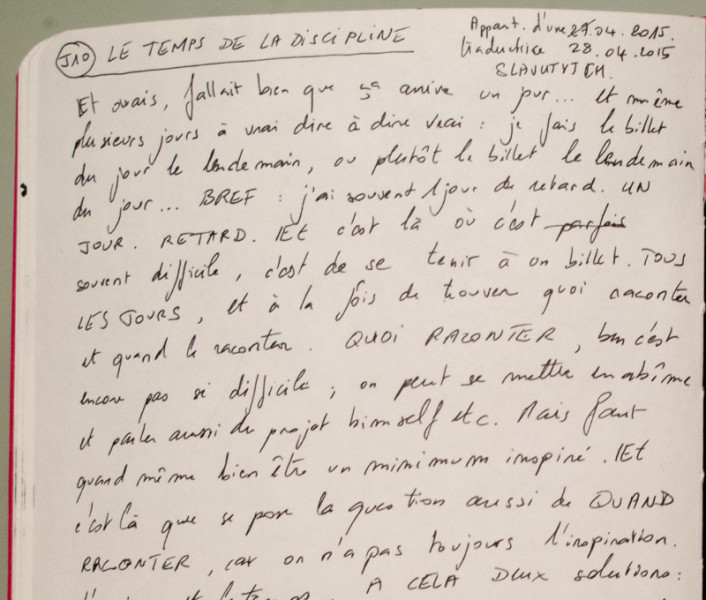 J10 LE TEMPS DE LA DISCIPLINE
Appart. d'une 27.04.2015.
traductrice 28.04.2015
SLAVUTYCH.
Et ouais, fallait bien que ça arrive un jour... Et même
plusieurs jours à vrai dire à dire vrai : je fais le billet
du jour le lendemain, ou plutôt le billet le lendemain
du jour... BREF : j'ai souvent 1 jour de retard. UN
JOUR. RETARD. Et c'est là où c'est parfois
souvent difficile, c'est de se tenir à un billet. TOUS
LES JOURS, et à la fois de trouver quoi raconter
et quand le raconter. QUOI RACONTER, ben c'est
encore pas si difficile ; on peut se mettre en abîme
et parler aussi du projet himself etc. Mais faut
quand même bien être un minimum inspiré. Et
c'est là que se pose la question aussi de QUAND
RACONTER, car on n'a pas toujours l'inspiration.
A CELA DEUX solutions :